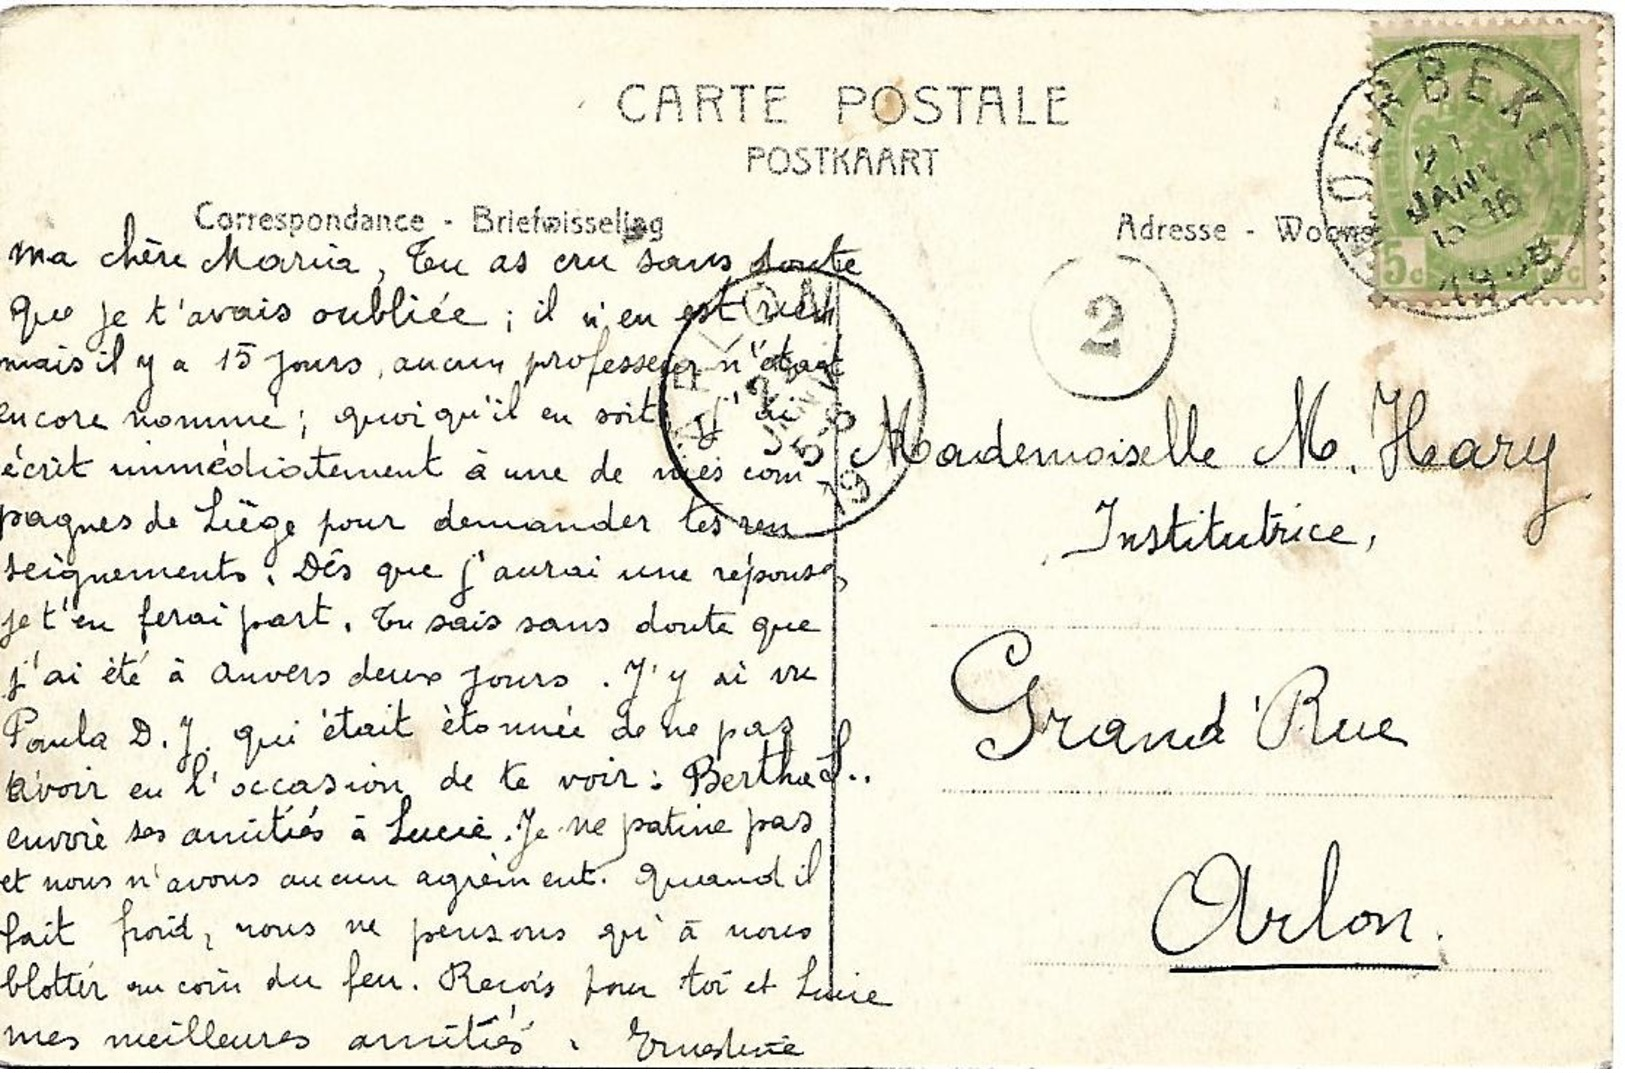 CARTE POSTALE
POSTKAART
Correspondance - Briefwisseling
Adresse - Woons
MOERBEKE
21
JANV
15-16
1908
5c
2
ARLON
JANV
5-6
19
ma chère Maria, Tu as cru sans doute
que je t'avais oubliée ; il n'en est rien
mais il y a 15 jours, aucun professeur n'était
encore nommé ; quoiqu'il en soit, j'ai
écrit immédiatement à une de mes com
pagnes de Liège pour demander tes ren
seignements. Dès que j'aurai une réponse,
je t'en ferai part. Tu sais sans doute que
j'ai été à Anvers deux jours. J'y ai vu
Paula D. J. qui était étonnée de ne pas
avoir eu l'occasion de te voir : Berthe L..
envoie ses amitiés à Lucie. Je ne patine pas
et nous n'avons aucun agrément. Quand il
fait froid, nous ne pensons qu'à nous
blottir au coin du feu. Reçois pour toi et Lucie
mes meilleures amitiés. Ernestine
Mademoiselle M. Hary
Institutrice,
Grand'Rue
Arlon.